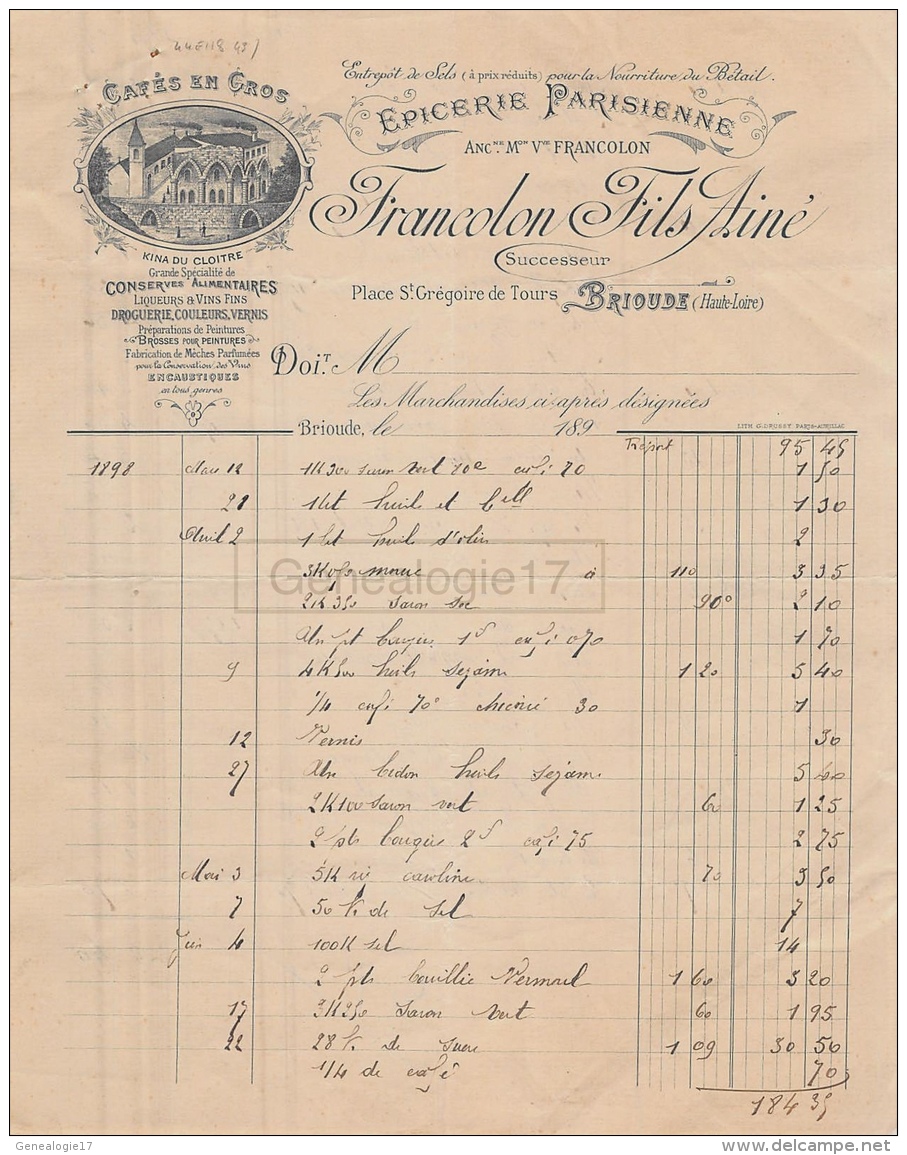 CAFÉS EN GROS
KINA DU CLOITRE
Grande Spécialité de
CONSERVES ALIMENTAIRES
LIQUEURS & VINS FINS
DROGUERIE, COULEURS, VERNIS
Préparations de Peintures
BROSSES POUR PEINTURES
Fabrication de Mèches Parfumées
pour la Conservation des Vins
ENCAUSTIQUES
en tous genres
Entrepôt de Sels (à prix réduits) pour la Nourriture du Bétail.
EPICERIE PARISIENNE
ANC.NE M.ON V.VE FRANCOLON
Francolon Fils Ainé
Successeur
Place St. Grégoire de Tours BRIOUDE (Haute-Loire)
Doi.T M
Les Marchandises ci-après désignées
Brioude, le 189
LITH. G. DRUSST PARIS-AURILLAC
Report 95 45
1898 Mars 12 1K300 savon vert 70c café 70 1 50
21 1 lit huile et bell 1 30
Avril 2 1 lit huile d'olive 2
3K050 morue à 110 3 35
2K350 savon sec 90 2 10
Un pt bougies café 070 1 70
9 4K500 huile sezame 1 20 5 40
1/4 café 70 chicorée 30 1
12 Vernis 30
27 Un bidon huile sezame 5 40
2K100 savon vert 60 1 25
2 pts bougies café 75 2 75
Mai 3 5K riz caroline 70 3 50
7 50 K. de sel 7
Juin 4 100K sel 14
2 pts bouillie Vermorel 1 60 3 20
17 3K250 savon vert 60 1 95
22 28 K. de sucre 1 09 30 50
1/4 de café 70
184 35
Genealogie17
Genealogie17
www.delcampe.net